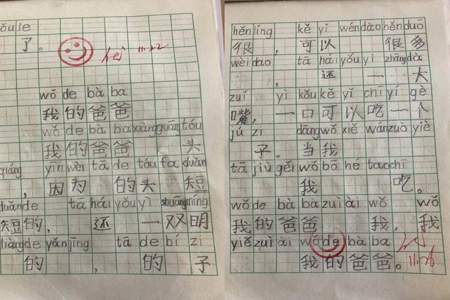 ōu le
了。
wǒ de bà ba
我的爸爸
wǒ de bà ba xiàng guāng tóu
我的爸爸 头
qiáng yīn wèi tā de tóu fa duǎn
，因为 的头 短
duǎn de tā hái yǒu yì shuāng míng
短的，还 一双明
liàng de yǎn jing tā de bí zi
的 ，的 子
hěn líng kě yǐ wén dào hěn duō
很 ，可以 很多
wèi dao tā hái yǒu yì zhāng dà
，还 一 大
zuǐ yì kǒu kě yǐ chī yí gè
嘴，一口可以吃一个
jú zi dāng wǒ xiě wán zuò yè
子。当我
tā jiù gěi wǒ bō táo chī
我 吃。
wǒ de bà ba zuì ài wǒ wǒ
我的爸爸 我，我
yě zuì ài wǒ de bà ba
我的爸爸。